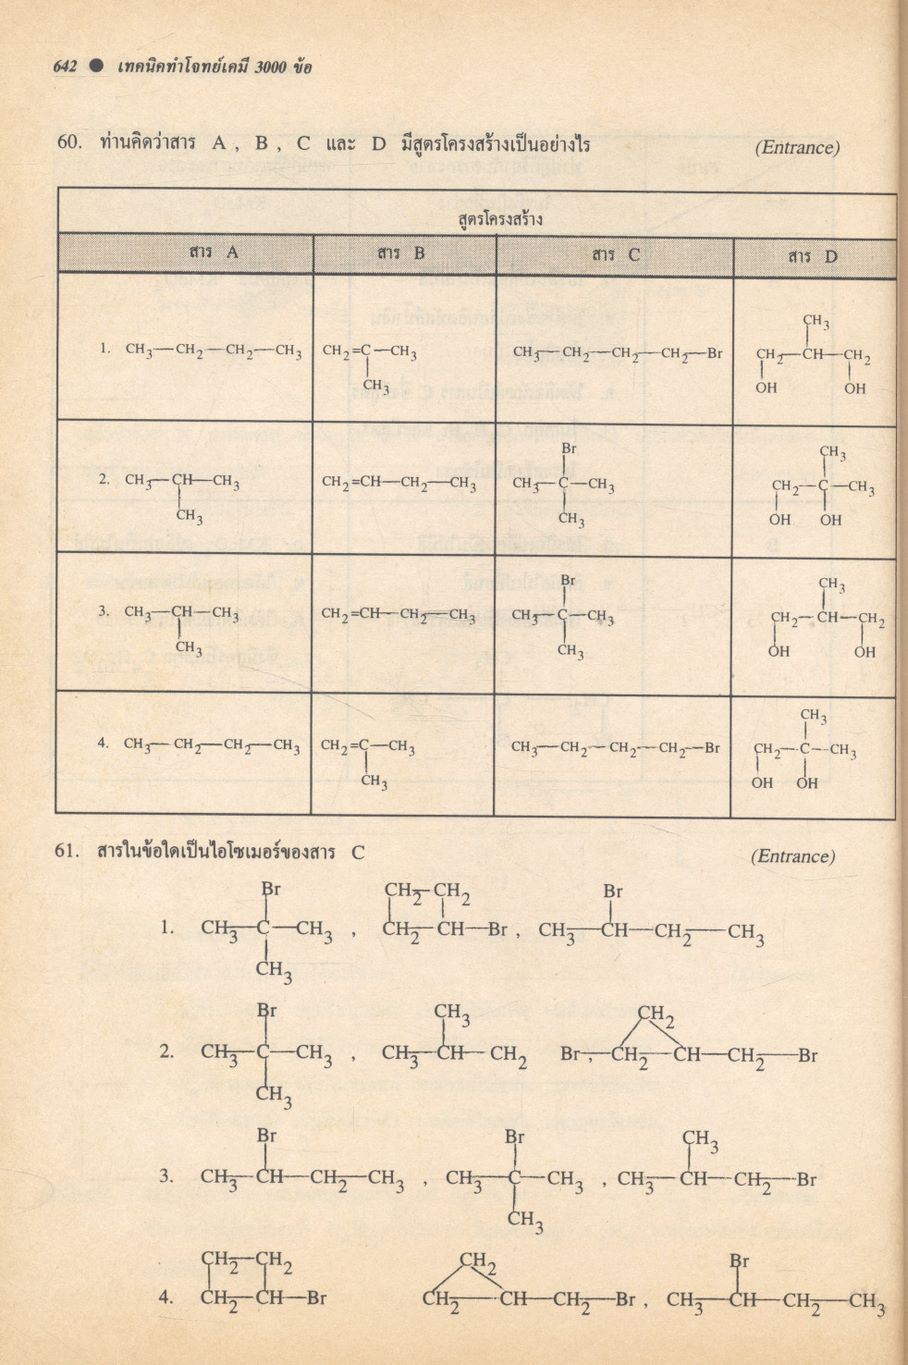 642 ● เทคนิคทำโจทย์เคมี 3000 ข้อ
60. ท่านคิดว่าสาร A , B , C และ D มีสูตรโครงสร้างเป็นอย่างไร (Entrance)
สูตรโครงสร้าง
สาร A สาร B สาร C สาร D
CH3
1. CH3—CH2—CH2—CH3 CH2=C—CH3 CH3—CH2—CH2—CH2—Br CH2—CH—CH2
CH3 OH OH
Br CH3
2. CH3—CH—CH3 CH2=CH—CH2—CH3 CH3—C—CH3 CH2—C—CH3
CH3 CH3 OH OH
Br CH3
3. CH3—CH—CH3 CH2=CH—CH2—CH3 CH3—C—CH3 CH2—CH—CH2
CH3 CH3 OH OH
CH3
4. CH3—CH2—CH2—CH3 CH2=C—CH3 CH3—CH2—CH2—CH2—Br CH2—C—CH3
CH3 OH OH
61. สารในข้อใดเป็นไอโซเมอร์ของสาร C (Entrance)
Br CH2—CH2 Br
1. CH3—C—CH3 , CH2—CH—Br , CH3—CH—CH2—CH3
CH3
Br CH3 CH2
2. CH3—C—CH3 , CH3—CH—CH2 Br , CH2—CH—CH2—Br
CH3
Br Br CH3
3. CH3—CH—CH2—CH3 , CH3—C—CH3 , CH3—CH—CH2—Br
CH3
CH2—CH2 CH2 Br
4. CH2—CH—Br CH2—CH—CH2—Br , CH3—CH—CH2—CH3